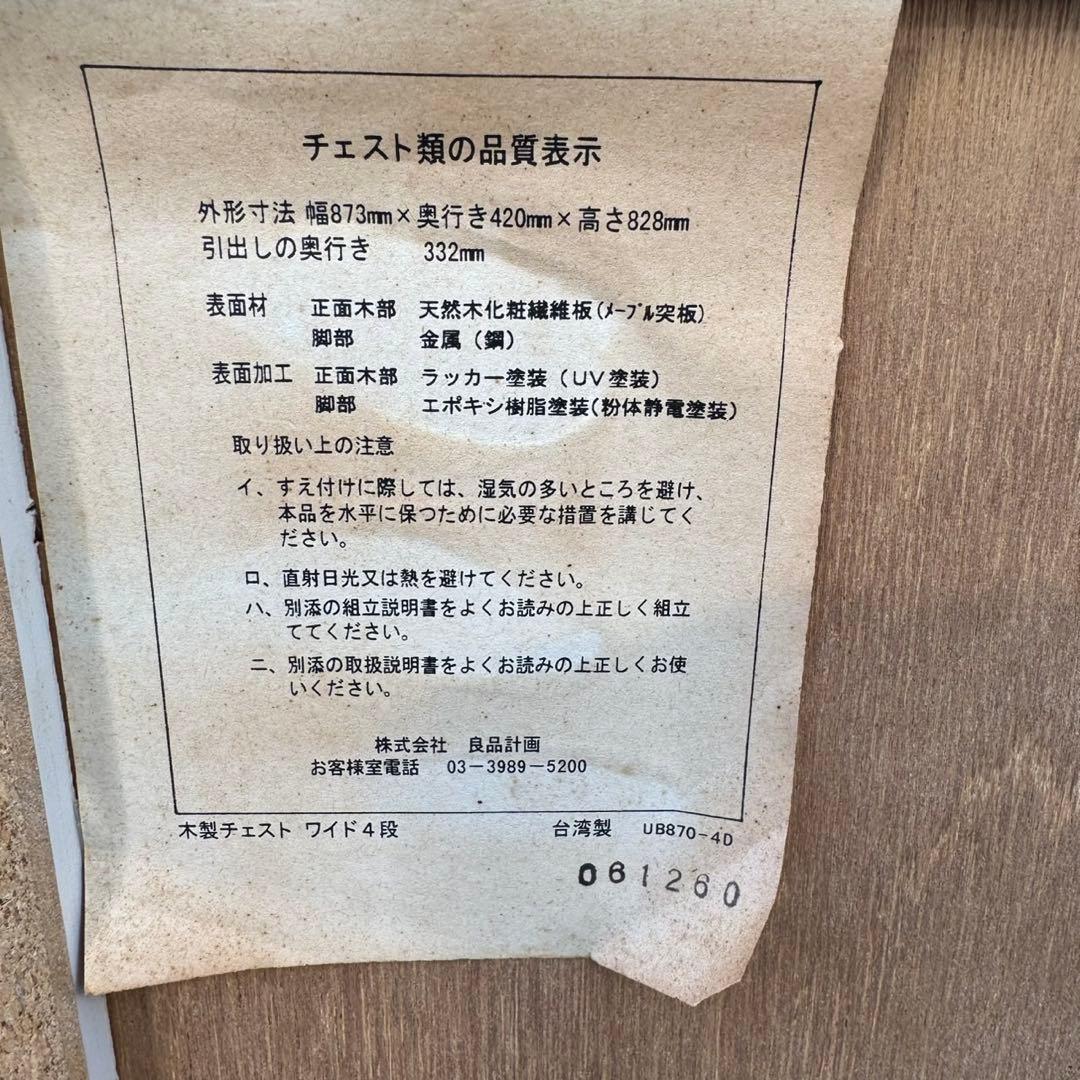 チェスト類の品質表示
外形寸法 幅873mm×奥行き420mm×高さ828mm
引出しの奥行き 332mm
表面材 正面木部 天然木化粧繊維板(メープル突板)
脚部 金属(鋼)
表面加工 正面木部 ラッカー塗装(UV塗装)
脚部 エポキシ樹脂塗装(粉体静電塗装)
取り扱い上の注意
イ、すえ付けに際しては、湿気の多いところを避け、
本品を水平に保つために必要な措置を講じてく
ださい。
ロ、直射日光又は熱を避けてください。
ハ、別添の組立説明書をよくお読みの上正しく組立
ててください。
ニ、別添の取扱説明書をよくお読みの上正しくお使
いください。
株式会社 良品計画
お客様室電話 03-3989-5200
木製チェスト ワイド4段 台湾製 UB870-4D
061260